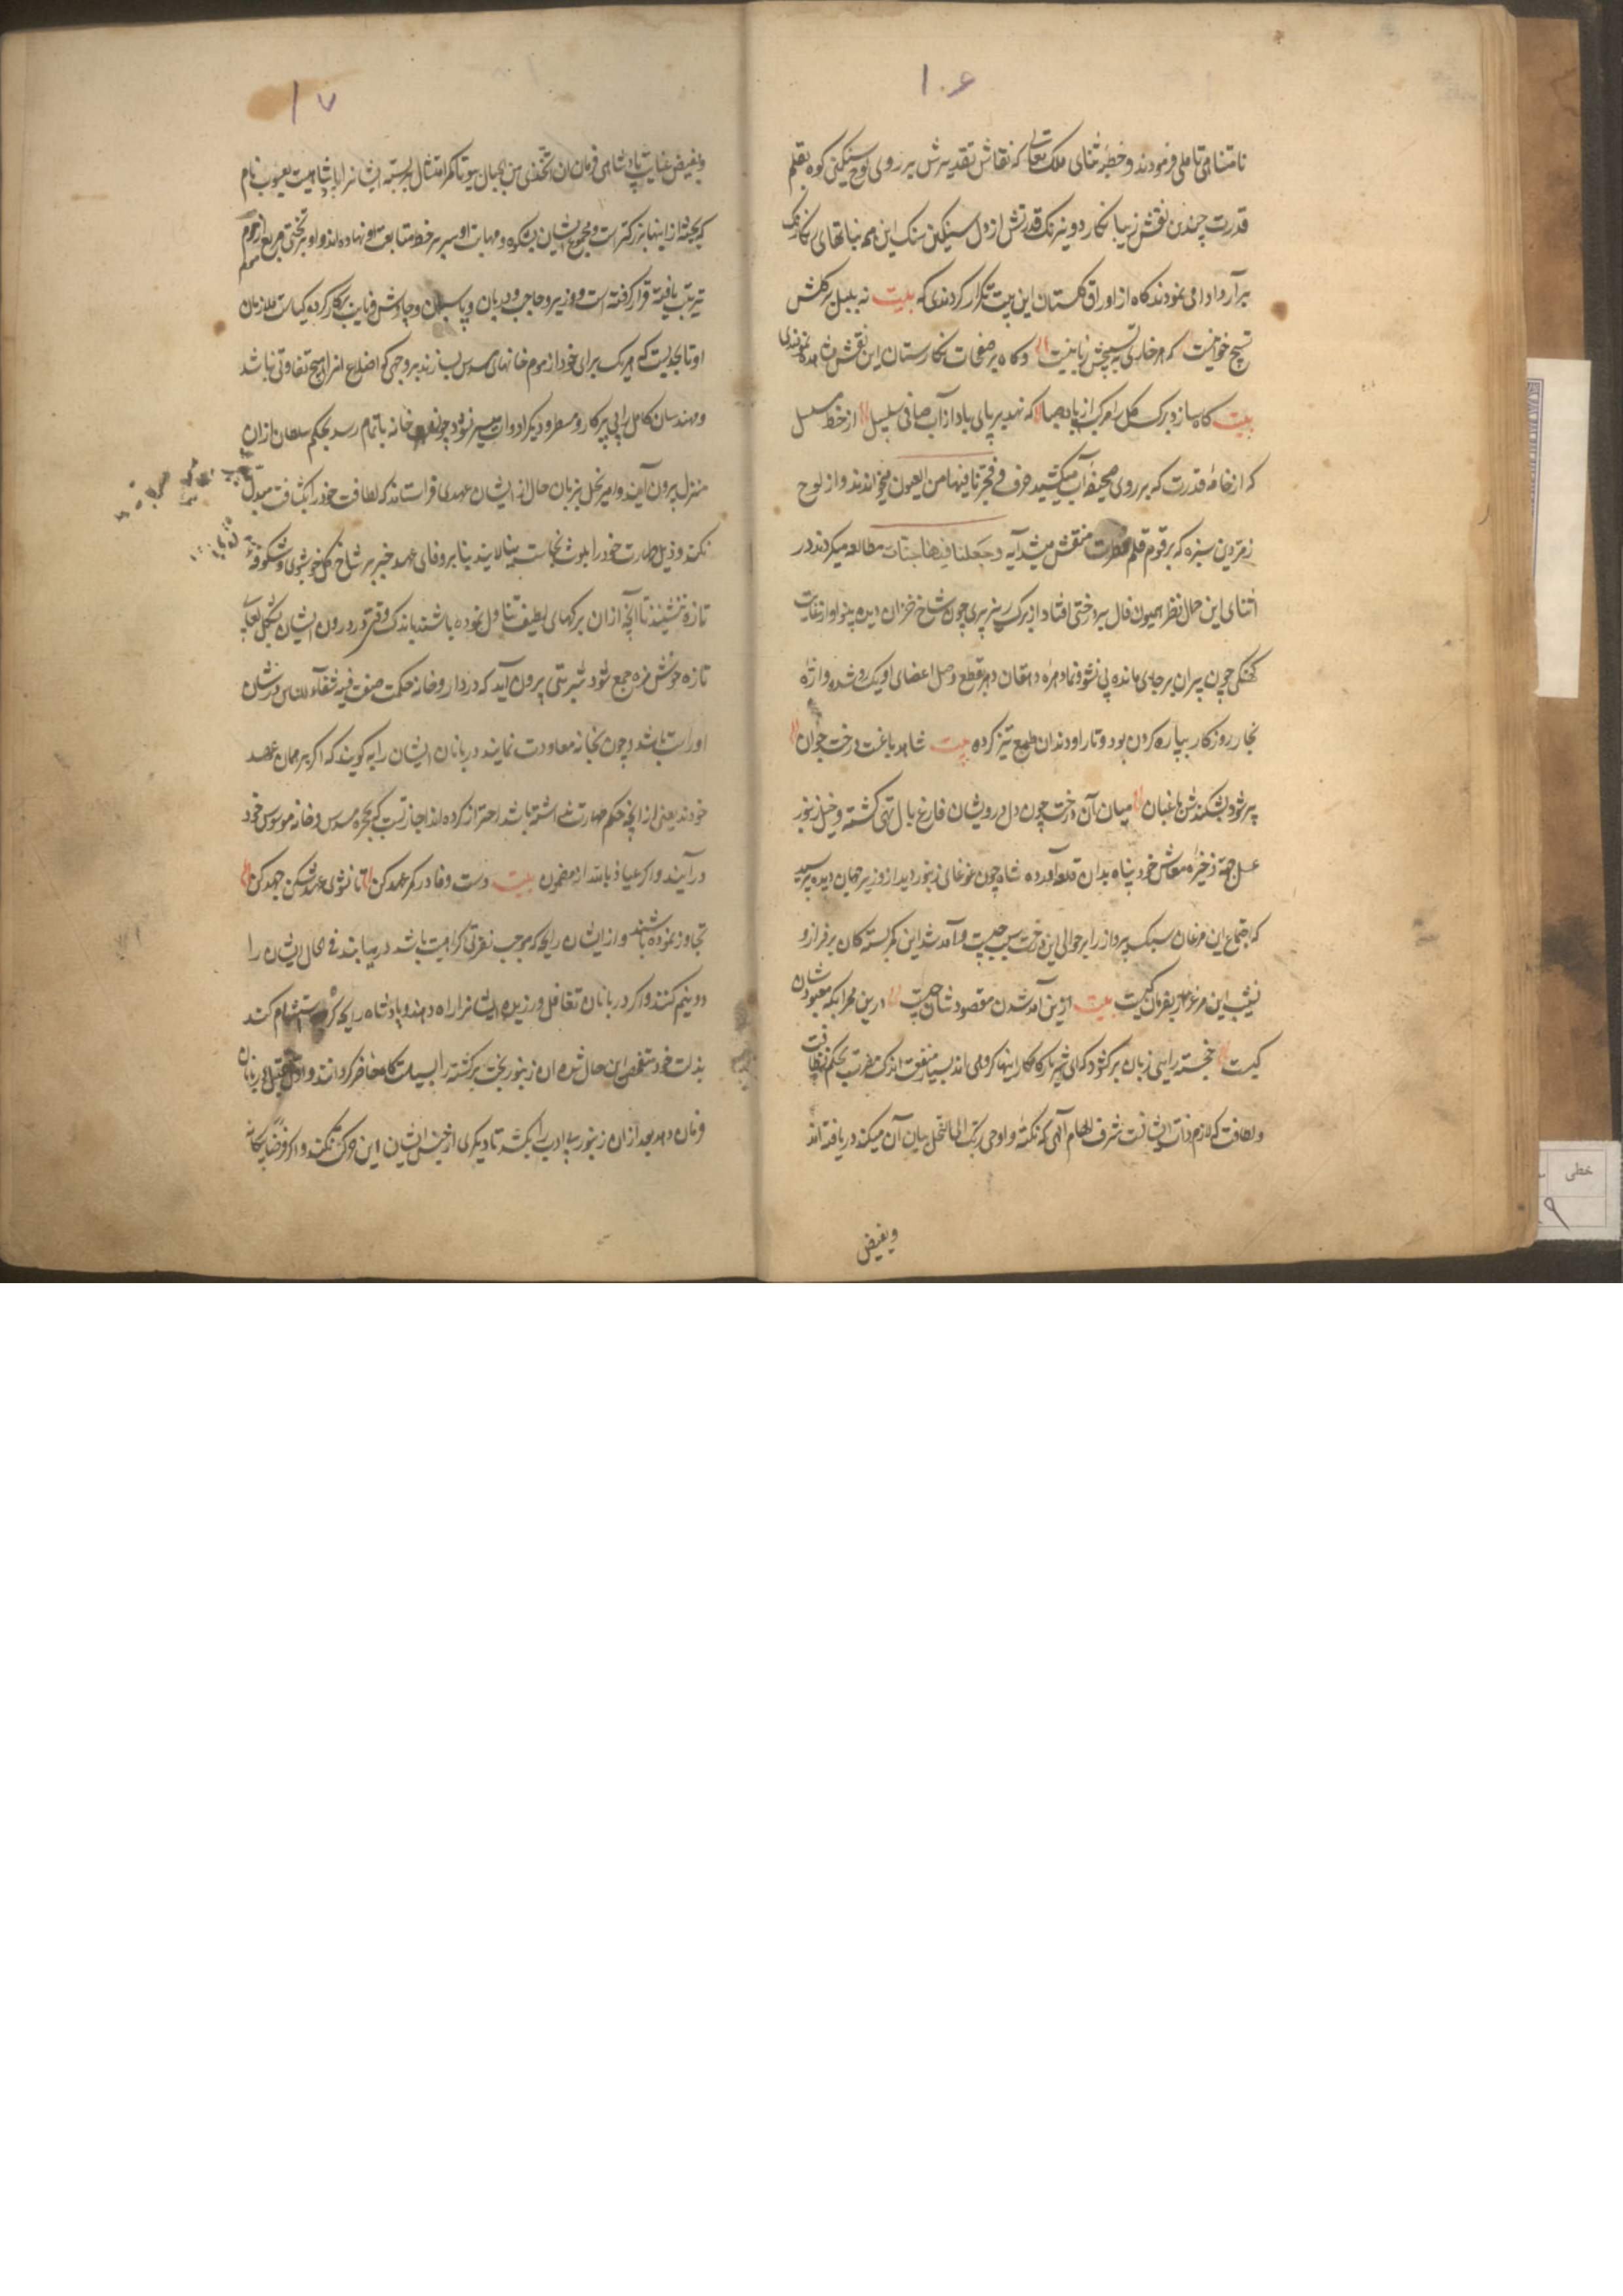 ۱۰۶
نامتناهی تاملی فرمودند و خطبه ثنای ملک تعالی که نقاش تقدیرش بر روی لوح سنگین کوه بقلم
قدرت چندین نقش زیبا نکارد و نیرنک قدرتش از دل سنکین سنک این همه نباتهای رنکارنک
برآرد ادا می نمودند کاه از اوراق کلستان این بیت تکرار کردندی که بیت نه بلبل بر کلش
تسبیح خوانیست که هر خاری به تسبیحش زبانیست و کاه بر صفحات نکارستان این نقش مشاهده نمودندی
بیت کاه سازد برک کل را مرکب از باد صبا که نهد بر پای باد از آب صافی سلسله از خط مسلسل
که از خامه قدرت که بر روی صحیفه آب میکشید حرف و فجرنا فیها من العیون میخواندند و از لوح
زمردین سبزه که برقوم قلم فطرت منقش میشد آیه وجعلنا فیها جنات مطالعه میکردند در
اثنای این حال نظر همیون فال بر درختی افتاد از برک ریزپری چون شاخ خزان دیده بینوا و از غایت
کهنکی چون پیران بر جای مانده بی نشو و نما دهره دهقان دهر قطع وصل اعضای او یک رو شده و اره
نجار روزکار بپاره کردن پود و تار او دندان طمع تیز کرده بیت شاهد باغست درخت جوان
پیر شود بشکندش باغبان میان آن درخت چون دل درویشان فارغ بال تهی کشته و خیل زنبور
عسل جهة ذخیره معاش خود پناه بدان قلعه آورده شاه چون غوغای زنبور دید از وزیر جهان دیده پرسید
که اجتماع این مرغان سبک پرواز را بر حوالی این درخت سبب چیست و آمد شد این کمر بستکان بر فراز و
نشیب این مرغزار بفرمان کیست بیت ازین آمد شدن مقصودشان چیست درین محرابکه معبودشان
کیست خجسته رای زبان برکشود که ای شهریار کامکار اینها کروهی اند بسیار منفعت اندک مضرت بحکم نظافت
و لطافت که لازم ذات ایشانست شرف الهام آلهی که نکته و اوحی ربک الی النحل بیان آن میکند دریافته اند
و بفیض
۱۰۷
و بفیض عنایت پادشاهی فرمان ان اتخذی من الجبال بیوتا کمر امتثال بر بسته ایشانرا پادشاهیست یعسوب نام
که بجثه از اینها بزرکتر است و مجموع ایشان بشکوه و مهابت او سر بر خط متابعت نهاده اند و او بر تختی مربع از موم
ترتیب یافته قرار کرفته است و وزیر و حاجب و دربان و پاسبان و چاوش و نایب بر کار کرده کیاست ملازمان
او تا بحدیست که هر یک برای خود از موم خانهای مسدس بسازند بر وجهی که اضلاع انرا هیچ تفاوتی نباشد
و مهندسان کامل را بی پرکار و مسطر و دیکر ادوات میسر نبود و چون خانه باتمام رسد بحکم سلطان از ان
منزل بیرون آیند و امیر نحل بزبان حال از ایشان عهدی فراستاند که لطافت خود را بکثافت مبدل
نکنند و ذیل طهارت خود را بلوث نجاست نیالایند بنا بر وفای عهد جز بر شاخ کل خوشبوی و شکوفه
تازه ننشینند تا آنچه ازان برکهای لطیف تناول نموده باشند باندک وقتی در درون ایشان بشکل لعاب
تازه خوش مزه جمع شود و شربتی بیرون آید که در داروخانه حکمت صفت فیه شفاء للناس در شان
او راست باشد و چون بخانه معاودت نمایند دربانان ایشان را ببویند که اکر بر همان عهد
خودند یعنی از آنچه حکم طهارت نداشته باشد احتراز کرده اند اجازتست که بحجره مسدس و خانه موسوس خود
درآیند و اکر عیاذ بالله از مضمون بیت دست وفا در کمر عهد کن تا نشوی عهد شکن جهد کن
تجاوز نموده باشند و از ایشان رایحه که موجب نفرتی و کراهیت باشد دریابند فی الحال ایشان را
دو نیم کنند و اکر دربانان تغافل ورزیده ایشانرا راه دهند و پادشاه رایحه کریه استشمام کند
بذات خود متفحص این حال شده ان زنبور بخت برکشته را بسیاستکاه حاضر کرداند و اول بقتل دربانان
فرمان دهد بعد از ان زنبور بی ادب را بکشد تا دیکری از جنس ایشان این حرکت نکند و اکر فرضا بیکانه
خطی
۹